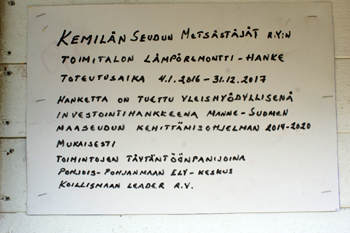 KEMILÄN SEUDUN METSÄSTÄJÄT R.Y:N
TOIMITALON LÄMPÖREMONTTI - HANKE
TOTEUTUSAIKA 4.1.2016 - 31.12.2017
HANKETTA ON TUETTU YLEISHYÖDYLLISENÄ
INVESTOINTIHANKKEENA MANNE-SUOMEN
MAASEUDUN KEHITTÄMISOHJELMAN 2014-2020
MUKAISESTI
TOIMINTOJEN TÄYTÄNTÖÖNPANIJOINA
POHJOIS-POHJANMAAN ELY-KESKUS
KOILLISMAAN LEADER R.Y.